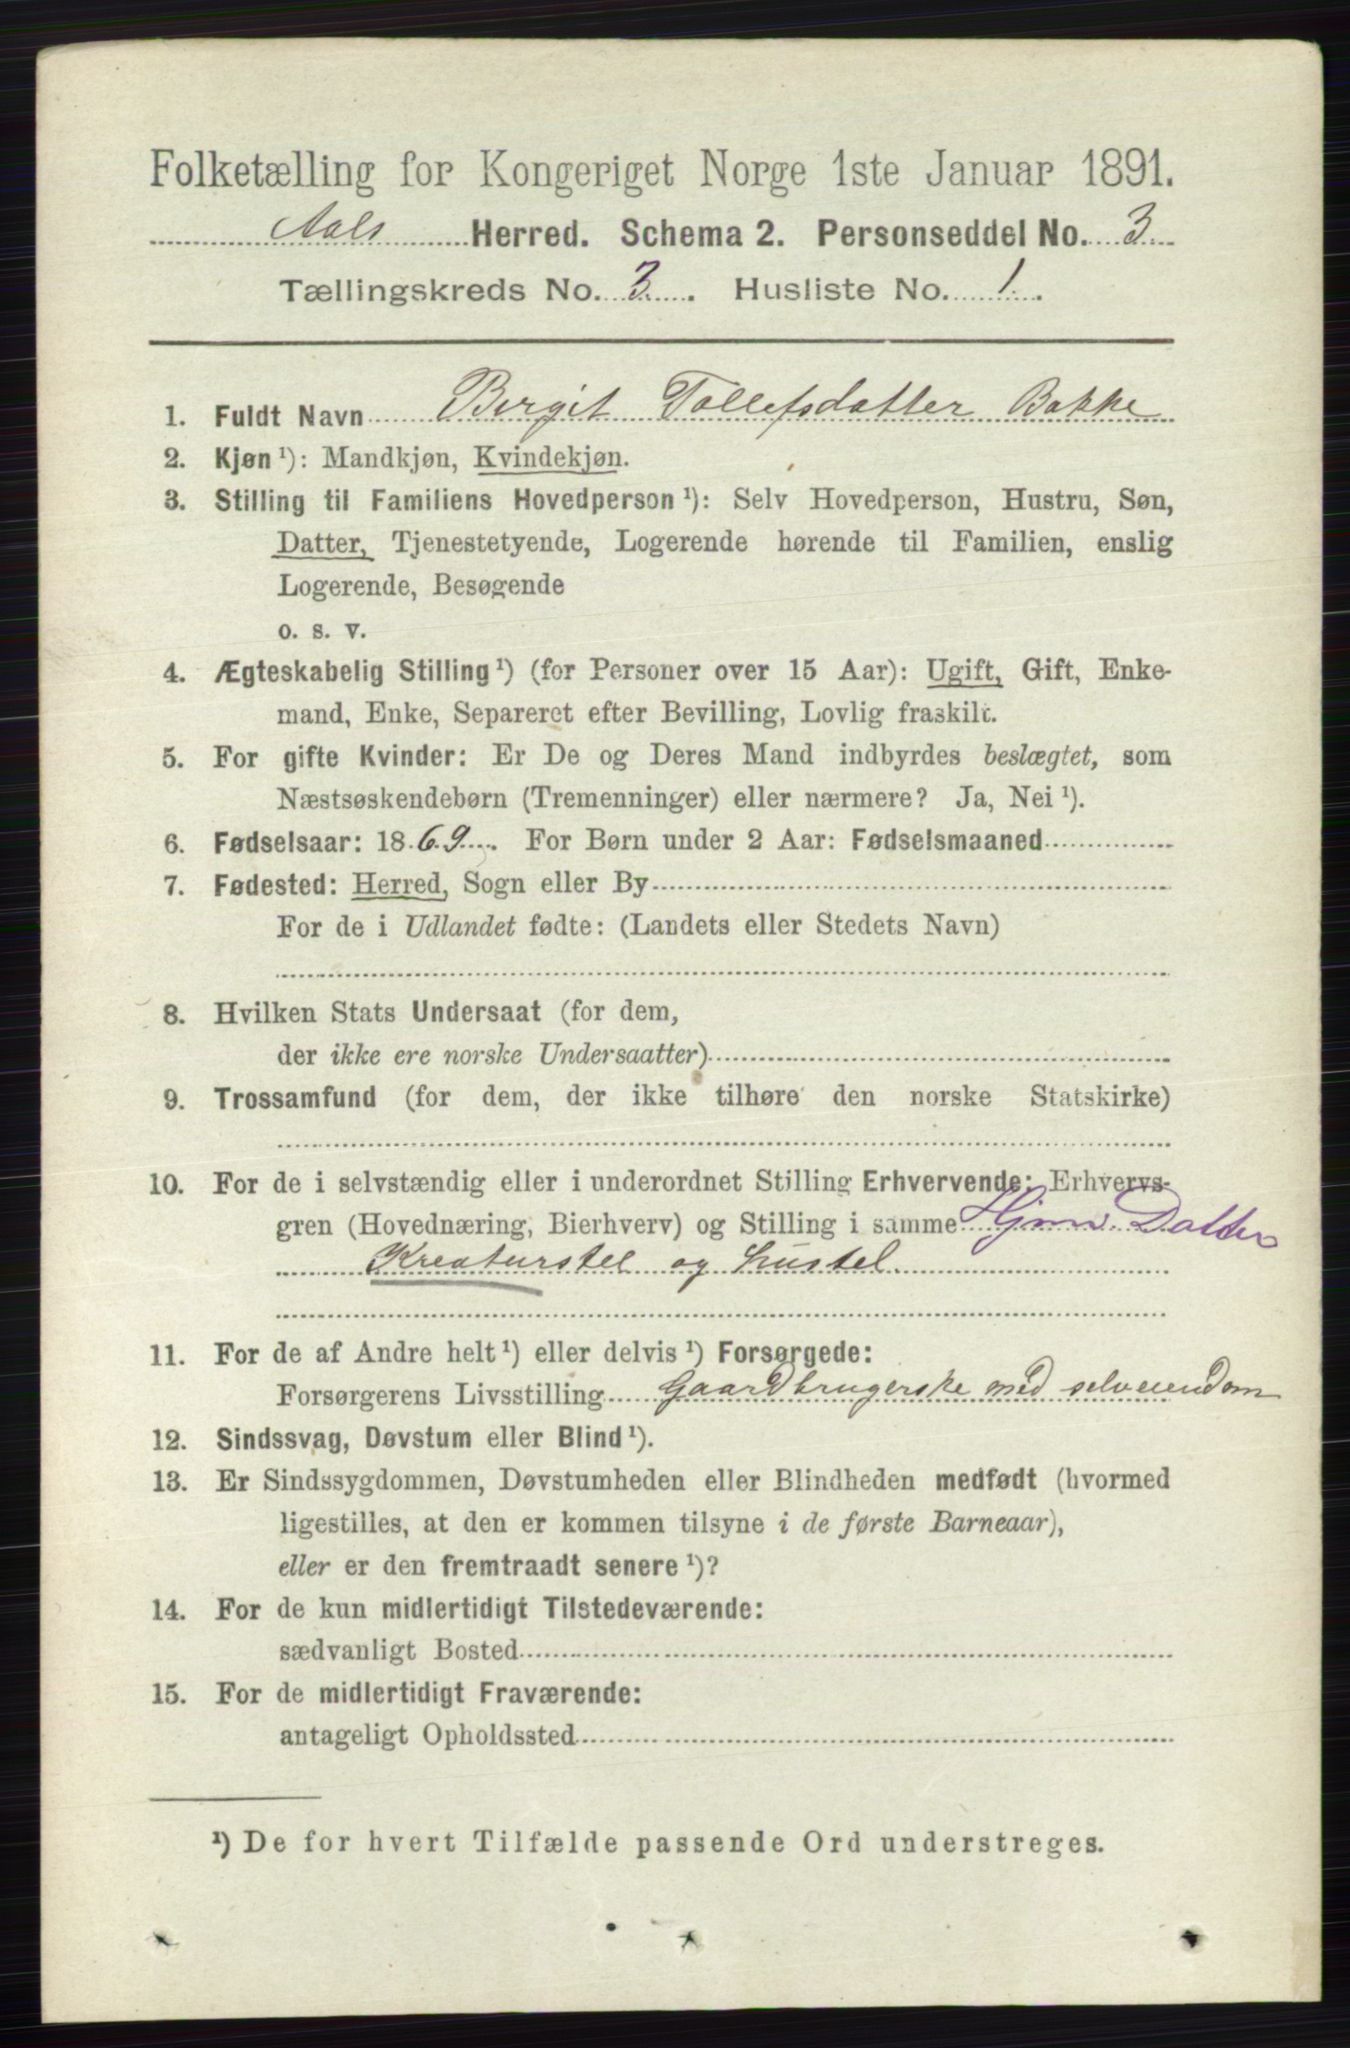 Folketælling for Kongeriget Norge 1ste Januar 1891.
Aals Herred. Schema 2. Personseddel No. 3
Tællingskreds No. 3. Husliste No. 1.
1. Fuldt Navn Birgit Tollefsdatter Bakke
2. Kjøn ¹): Mandkjøn, Kvindekjøn.
3. Stilling til Familiens Hovedperson ¹): Selv Hovedperson, Hustru, Søn,
Datter, Tjenestetyende, Logerende hørende til Familien, enslig
Logerende, Besøgende
o. s. v.
4. Ægteskabelig Stilling ¹) (for Personer over 15 Aar): Ugift, Gift, Enke-
mand, Enke, Separeret efter Bevilling, Lovlig fraskilt.
5. For gifte Kvinder: Er De og Deres Mand indbyrdes beslægtet, som
Næstsøskendebørn (Tremenninger) eller nærmere? Ja, Nei ¹).
6. Fødselsaar: 1869. For Børn under 2 Aar: Fødselsmaaned
7. Fødested: Herred, Sogn eller By
For de i Udlandet fødte: (Landets eller Stedets Navn)
8. Hvilken Stats Undersaat (for dem,
der ikke ere norske Undersaatter)
9. Trossamfund (for dem, der ikke tilhøre den norske Statskirke)
10. For de i selvstændig eller i underordnet Stilling Erhvervende: Erhvervs-
gren (Hovednæring, Bierhverv) og Stilling i samme Hjmv. Datter
Kreaturstel og hustel.
11. For de af Andre helt ¹) eller delvis ¹) Forsørgede:
Forsørgerens Livsstilling Gaardbrugerske med selveiendom
12. Sindssvag, Døvstum eller Blind ¹).
13. Er Sindssygdommen, Døvstumheden eller Blindheden medfødt (hvormed
ligestilles, at den er kommen tilsyne i de første Barneaar),
eller er den fremtraadt senere ¹)?
14. For de kun midlertidigt Tilstedeværende:
sædvanligt Bosted
15. For de midlertidigt Fraværende:
antageligt Opholdssted
¹) De for hvert Tilfælde passende Ord understreges.